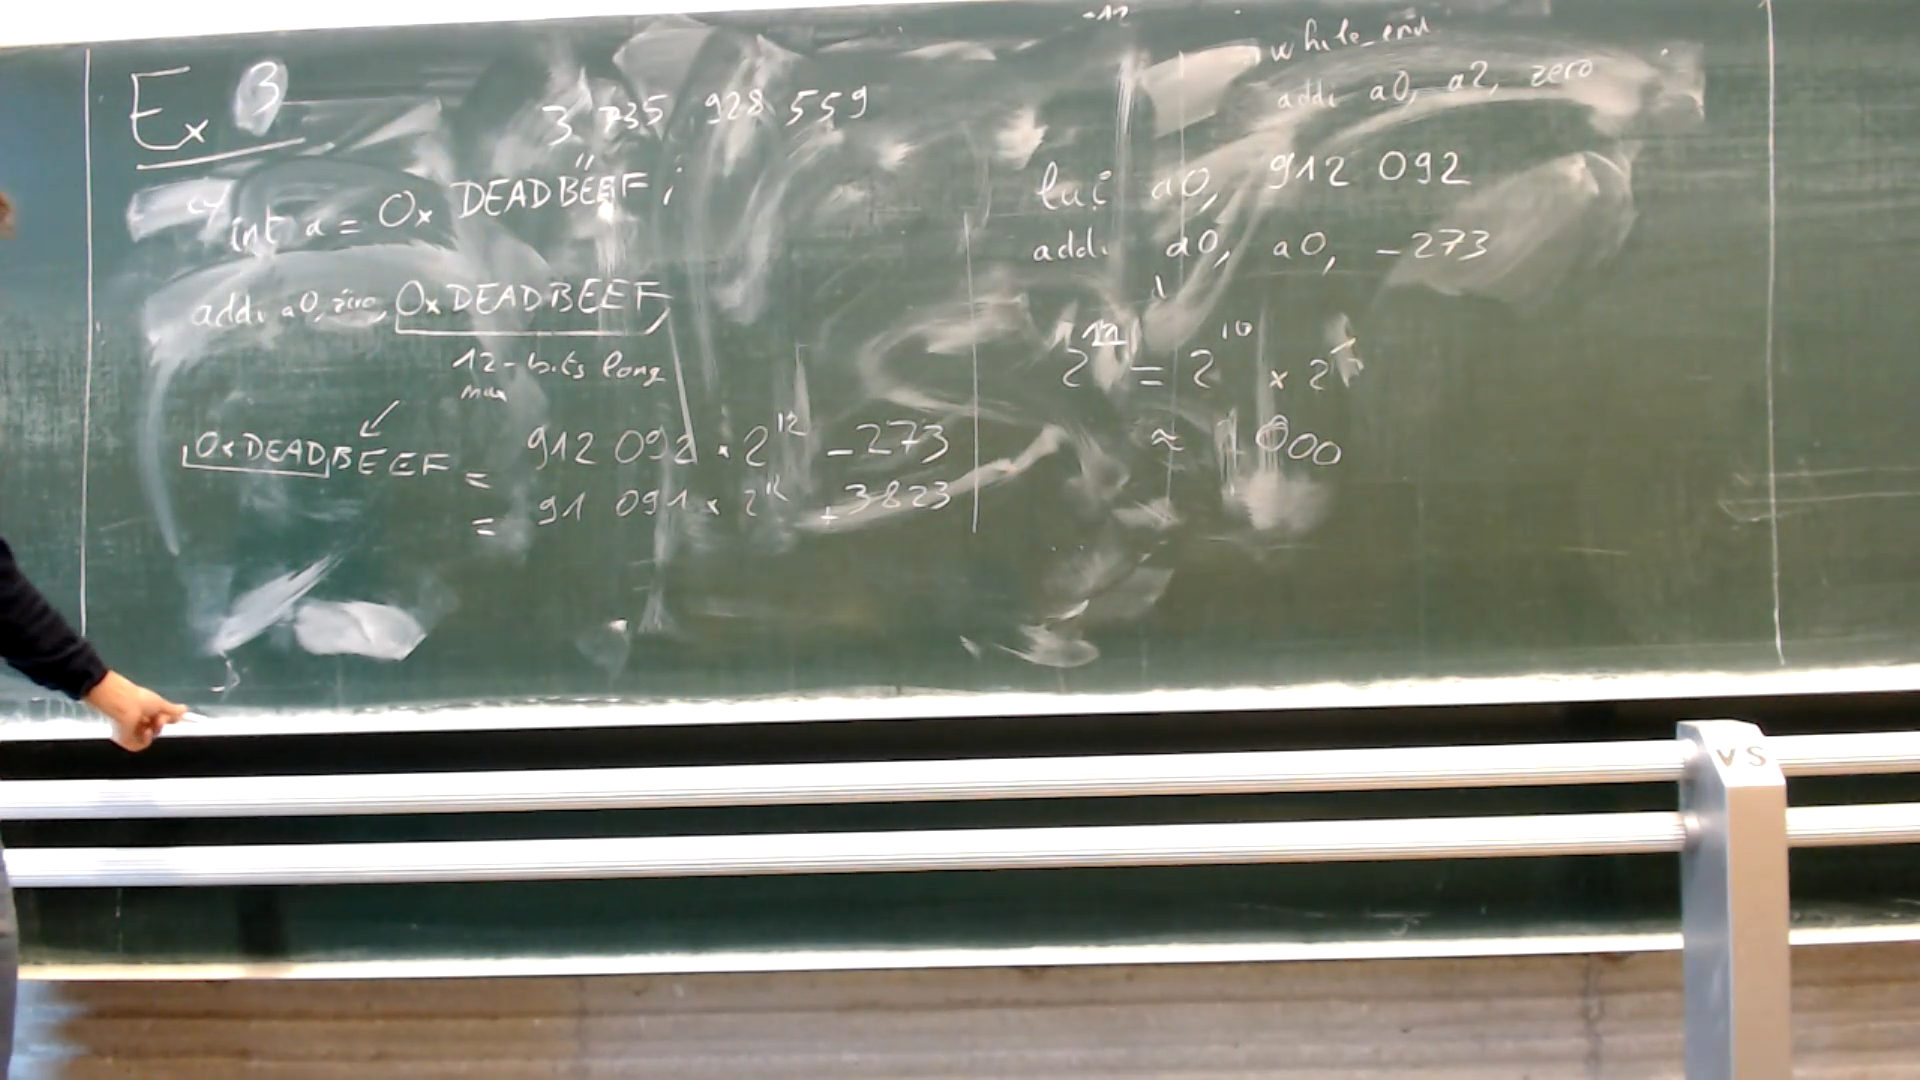 Ex 3
3 735 928 559
"
int a = 0x DEADBEEF ;
addi a0, zero, 0xDEADBEEF
12-bits long
max
0xDEADBEEF = 912 092 * 2^12 - 273
= 91 091 x 2^12 + 3823
while_end
addi a0, a2, zero
lui a0, 912 092
addi a0, a0, -273
= 2^10 x 2
≈ 1 000
VS